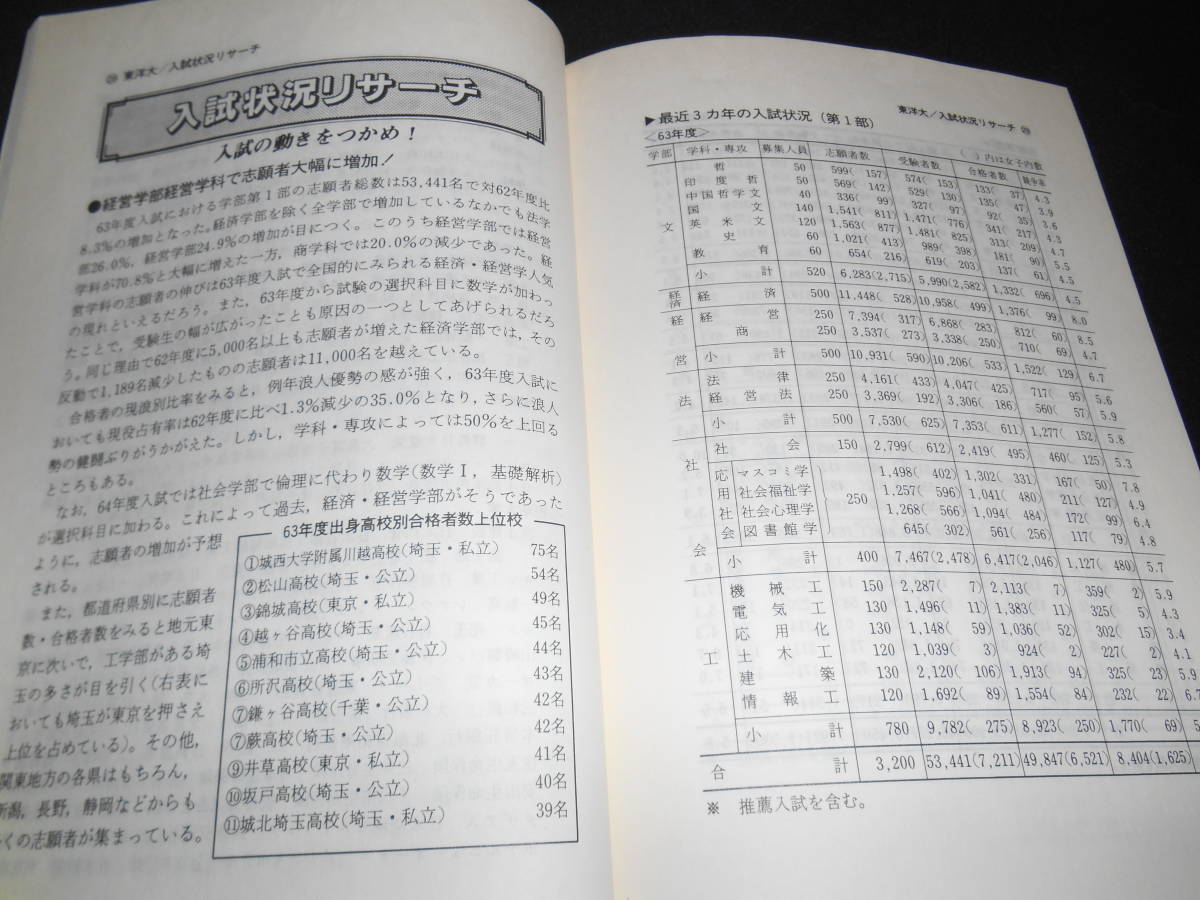 東洋大／入試状況リサーチ
入試状況リサーチ
入試の動きをつかめ！
●経営学部経営学科で志願者大幅に増加！
63年度入試における学部第１部の志願者総数は53,441名で対62年度比
8.3%の増加となった。経済学部を除く全学部で増加しているなかでも法学
部26.0%，経営学部24.9%の増加が目につく。このうち経営学部では経営
学科が70.8%と大幅に増えた一方，商学科では20.0%の減少であった。経
営学科の志願者の伸びは63年度入試で全国的にみられる経済・経営学人気
の現れといえるだろう。また，63年度から試験の選択科目に数学が加わっ
たことで，受験生の幅が広がったことも原因の一つとしてあげられるだろ
う。同じ理由で62年度に5,000名以上も志願者が増えた経済学部では，その
反動で1,189名減少したものの志願者は11,000名を越えている。
合格者の現浪別比率をみると，例年浪人優勢の感が強く，63年度入試に
おいても現役占有率は62年度に比べ1.3%減少の35.0%となり，さらに浪人
勢の健闘ぶりがうかがえた。しかし，学科・専攻によっては50%を上回る
ところもある。
なお，64年度入試では社会学部で倫理に代わり数学(数学Ⅰ，基礎解析)
が選択科目に加わる。これによって過去，経済・経営学部がそうであった
ように，志願者の増加が予想
される。
また，都道府県別に志願者
数・合格者数をみると地元東
京に次いで，工学部がある埼
玉の多さが目を引く(右表に
おいても埼玉が東京を押さえ
上位を占めている)。その他，
関東地方の各県はもちろん，
新潟，長野，静岡などからも
くの志願者が集まっている。
63年度出身高校別合格者数上位校
①城西大学附属川越高校(埼玉・私立) 75名
②松山高校(埼玉・公立) 54名
③錦城高校(東京・私立) 49名
④越ヶ谷高校(埼玉・公立) 45名
⑤浦和市立高校(埼玉・公立) 44名
⑥所沢高校(埼玉・公立) 43名
⑦鎌ヶ谷高校(千葉・公立) 42名
⑦蕨高校(埼玉・公立) 42名
⑨井草高校(東京・私立) 41名
⑩坂戸高校(埼玉・公立) 40名
⑪城北埼玉高校(埼玉・私立) 39名
東洋大／入試状況リサーチ
▶最近３カ年の入試状況（第１部）
＜63年度＞
（ ）内は女子内数
学部 学科・専攻 募集人員 志願者数 受験者数 合格者数 競争率
哲 50 599( 157) 574( 153) 133( 37) 4.3
印度哲 50 569( 142) 529( 130) 135( 45) 3.9
中国哲学文 40 336( 99) 327( 97) 92( 35) 3.6
国文 140 1,541( 811) 1,471( 776) 341( 217) 4.3
文 英米文 120 1,563( 877) 1,481( 825) 313( 209) 4.7
史 60 1,021( 413) 989( 398) 181( 90) 5.5
教育 60 654( 216) 619( 203) 137( 61) 4.5
小計 520 6,283(2,715) 5,990(2,582) 1,332( 696) 4.5
経済 経済 500 11,448( 528) 10,958( 499) 1,376( 99) 8.0
経営 経営 250 7,394( 317) 6,868( 283) 812( 60) 8.5
商 250 3,537( 273) 3,338( 250) 710( 69) 4.7
小計 500 10,931( 590) 10,206( 533) 1,522( 129) 6.7
法 法律 250 4,161( 433) 4,047( 425) 717( 95) 5.6
経営法 250 3,369( 192) 3,306( 186) 560( 57) 5.9
小計 500 7,530( 625) 7,353( 611) 1,277( 152) 5.8
社会 社会 150 2,799( 612) 2,419( 495) 460( 125) 5.3
応用社会 250
マスコミ学 1,498( 402) 1,302( 331) 167( 50) 7.8
社会福祉学 1,257( 596) 1,041( 480) 211( 127) 4.9
社会心理学 1,268( 566) 1,094( 484) 172( 99) 6.4
図書館学 645( 302) 561( 256) 117( 79) 4.8
小計 400 7,467(2,478) 6,417(2,046) 1,127( 480) 5.7
工 機械工 150 2,287( 7) 2,113( 7) 359( 2) 5.9
電気工 130 1,496( 11) 1,383( 11) 325( 5) 4.3
応用化 130 1,148( 59) 1,036( 52) 302( 15) 3.4
土木工 120 1,039( 3) 924( 2) 227( 2) 4.1
建築 130 2,120( 106) 1,913( 94) 325( 23) 5.9
情報工 120 1,692( 89) 1,554( 84) 232( 22) 6.7
小計 780 9,782( 275) 8,923( 250) 1,770( 69) 5.
合計 3,200 53,441(7,211) 49,847(6,521) 8,404(1,625)
※ 推薦入試を含む。